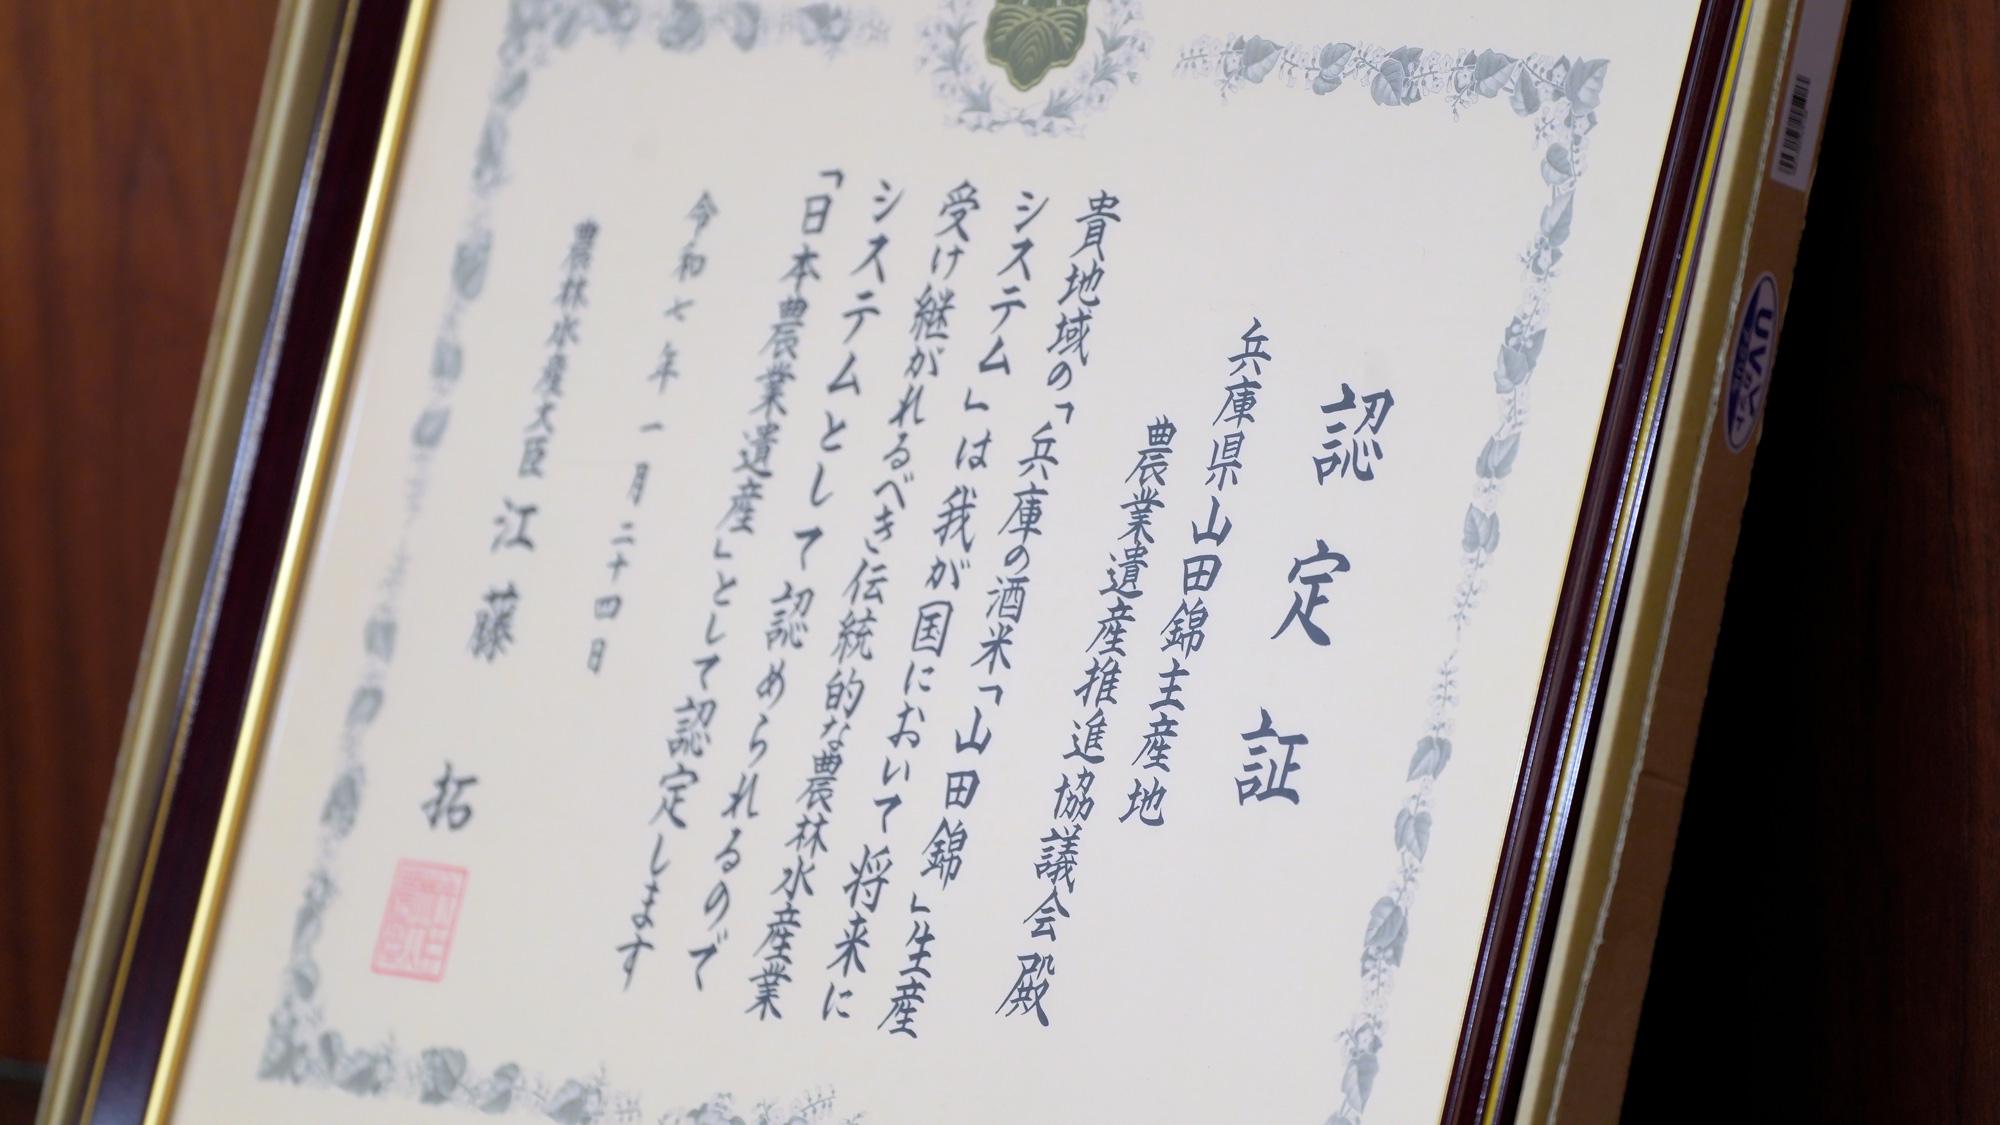 認定証
兵庫県山田錦主産地
農業遺産推進協議会殿
貴地域の「兵庫の酒米「山田錦」生産
システム」は我が国において将来に
受け継がれるべき伝統的な農林水産業
システムとして認められるので
「日本農業遺産」として認定します
令和七年一月二十四日
農林水産大臣 江藤 拓
UVカット